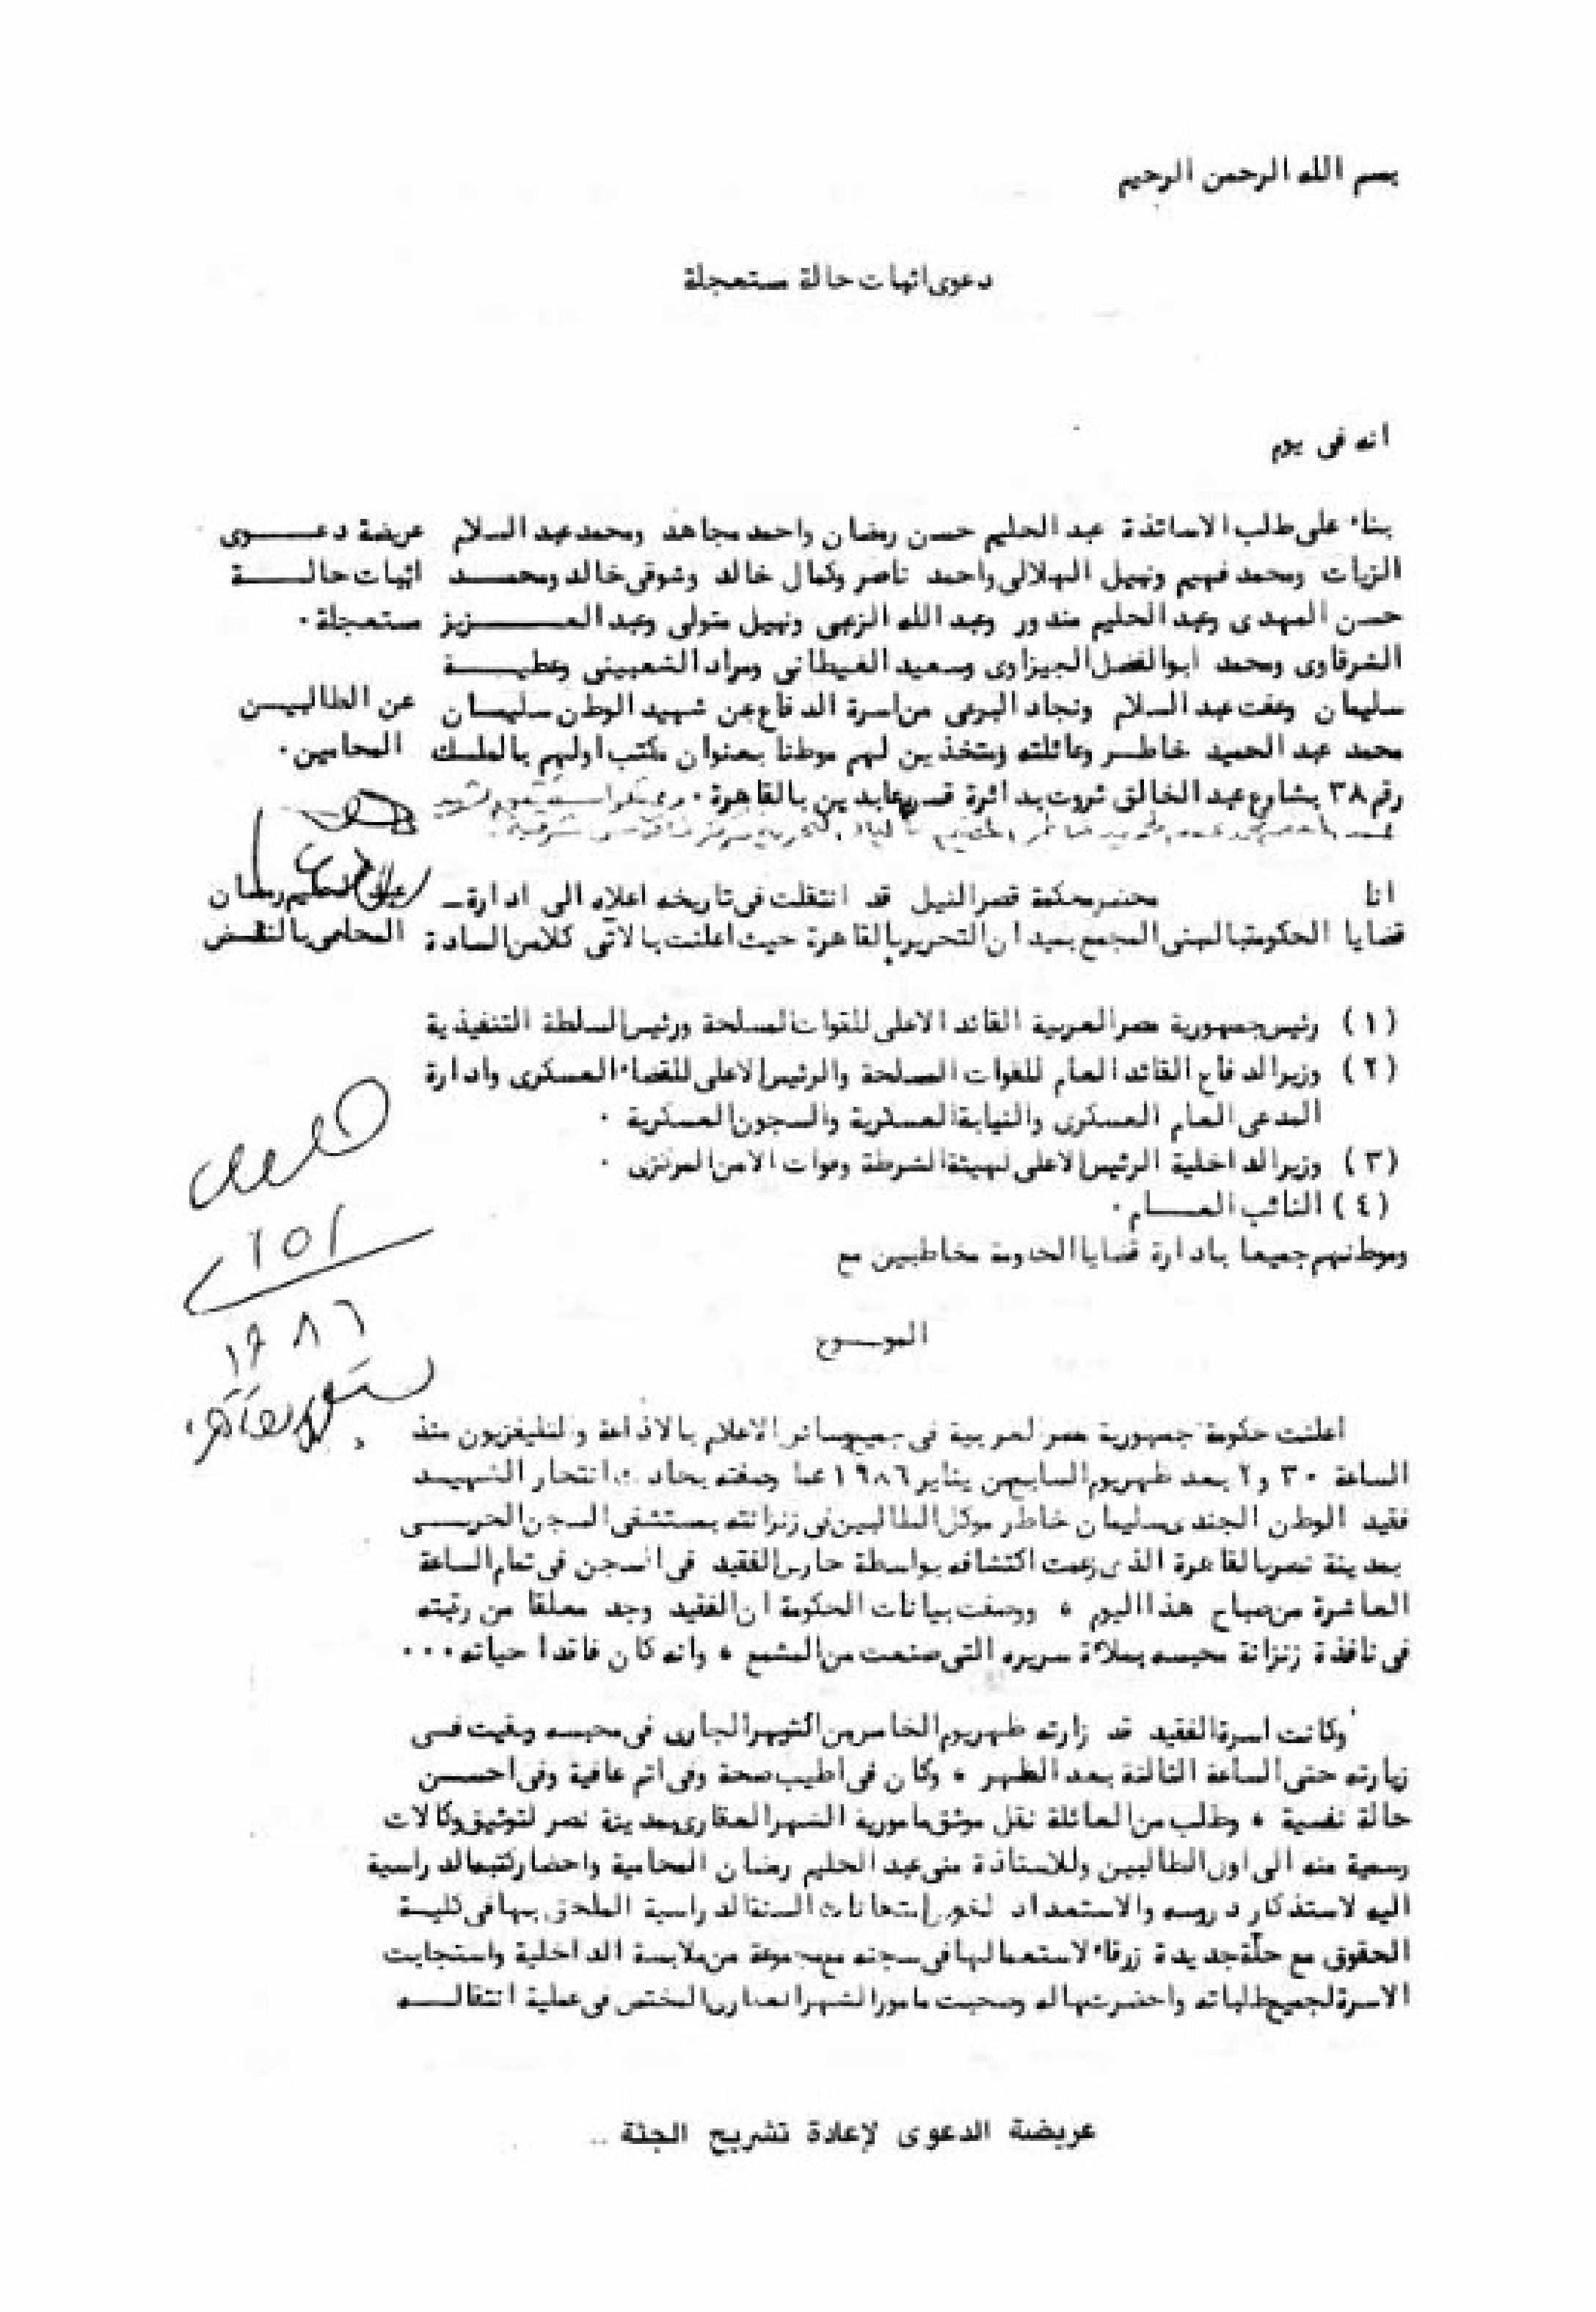 بسم الله الرحمن الرحيم
دعوى اثبات حالة مستعجلة
انه فى يوم
بناء على طلب الاساتذة عبد الحليم حسن رمضان واحمد مجاهد ومحمد عبد السلام
الزيات ومحمد فهيم ونبيل الهلالى واحمد ناصر وكمال خالد وشوقى خالد ومحمد
حسن المهدى وعبد الحليم مندور وعبد الله الزعبى ونبيل متولى وعبد العزيز
الشرقاوى ومحمد ابو الفضل الجيزاوى وسعيد الغيطانى ومراد الشعبينى وعطية
سليمان وعفت عبد السلام ونجاد البرعى من اسرة الدفاع عن شهيد الوطن سليمان
محمد عبد الحميد خاطر وعائلته ومتخذين لهم موطنا بعنوان مكتب اولهم بالملك
رقم ٣٨ بشارع عبد الخالق ثروت بدائرة قسم عابدين بالقاهرة ٠
عريضة دعوى
اثبات حالة
مستعجلة ٠
عن الطالبين
المحامين ٠
عبد الحليم رمضان
المحامى بالنقض
انا محضر محكمة قصر النيل قد انتقلت فى تاريخه اعلاه الى ادارة
قضايا الحكومة بالمبنى المجمع بميدان التحرير بالقاهرة حيث اعلنت بالاتى كلا من السادة
(١) رئيس جمهورية مصر العربية القائد الاعلى للقوات المسلحة ورئيس السلطة التنفيذية
(٢) وزير الدفاع القائد العام للقوات المسلحة والرئيس الاعلى للقضاء العسكرى وادارة
المدعى العام العسكرى والنيابة العسكرية والسجون العسكرية ٠
(٣) وزير الداخلية الرئيس الاعلى لهيئة الشرطة وقوات الامن المركزى ٠
(٤) النائب العام ٠
وموطنهم جميعا بادارة قضايا الحكومة مخاطبين مع
١٥١
١٩٨٦
الموضوع
اعلنت حكومة جمهورية مصر العربية فى جميع وسائل الاعلام بالاذاعة والتليفزيون منذ
الساعة ٣٠ و٢ بعد ظهر يوم السابع من يناير ١٩٨٦ عما وصفته بحادث انتحار الشهيد
فقيد الوطن الجندى سليمان خاطر موكل الطالبين فى زنزانته بمستشفى السجن الحربى
بمدينة نصر بالقاهرة الذى زعمت اكتشافه بواسطة حارس الفقيد فى السجن فى تمام الساعة
العاشرة من صباح هذا اليوم ، ووصفت بيانات الحكومة ان الفقيد وجد معلقا من رقبته
فى نافذة زنزانة محبسه بملاءة سريره التى صنعت من المشمع ، وانه كان فاقدا حياته ٠٠٠
وكانت اسرة الفقيد قد زارته ظهر يوم الخامس من الشهر الجارى فى محبسه وبقيت فى
زيارته حتى الساعة الثالثة بعد الظهر ، وكان فى اطيب صحة وفى اتم عافية وفى احسن
حالة نفسية ، وطلب من العائلة نقل موثق مامورية الشهر العقارى بمدينة نصر لتوثيق وكالات
رسمية منه الى اول الطالبين وللاستاذة منى عبد الحليم رمضان المحامية واحضار كتبه الدراسية
اليه لاستذكار دروسه والاستعداد لخوض امتحانات السنة الدراسية الملحق بها فى كلية
الحقوق مع حلة جديدة زرقاء لاستعمالها فى سجنه مع مجموعة من ملابسة الداخلية واستجابت
الاسرة لجميع طلباته واحضرتها له وصحبت مامور الشهر العقارى المختص فى عملية انتقاله
عريضة الدعوى لإعادة تشريح الجثة ..